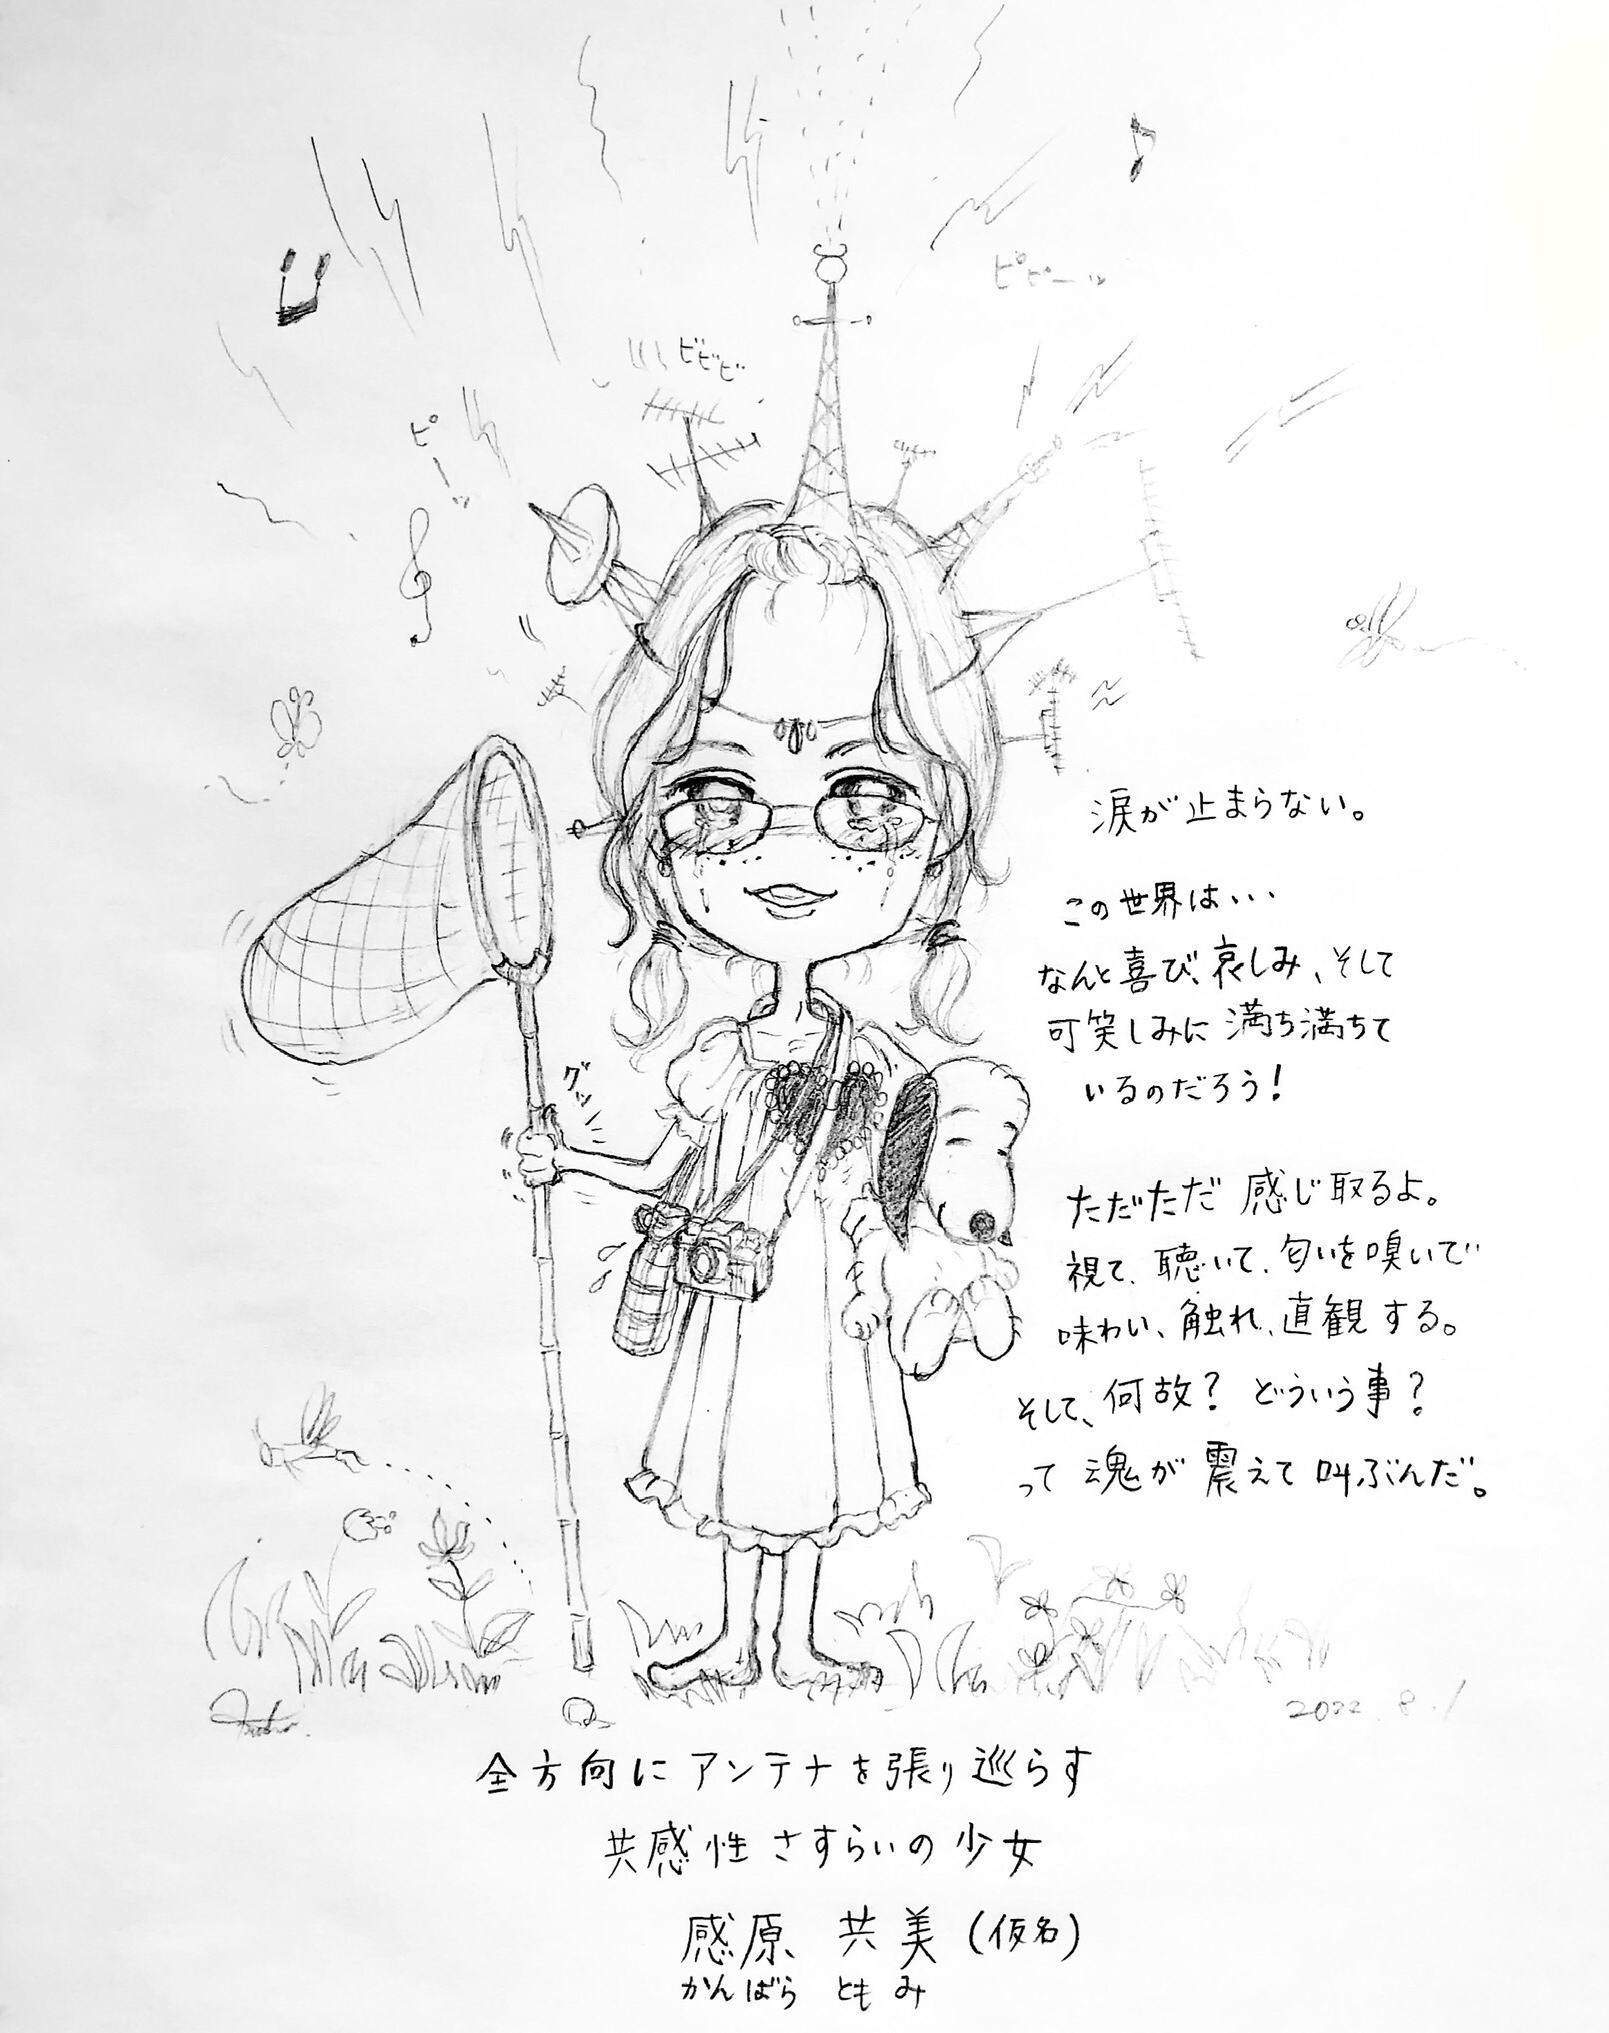 ピピーッ
ビビビ
ピーッ
涙が止まらない。
この世界は・・・
なんと喜び、哀しみ、そして
可笑しみに満ち満ちて
いるのだろう!
グッ
ただただ感じ取るよ。
視て、聴いて、匂いを嗅いで
味わい、触れ、直観する。
そして、何故?どういう事?
って魂が震えて叫ぶんだ。
2022.8.1
全方向にアンテナを張り巡らす
共感性さすらいの少女
感原 共美(仮名)
かんばら ともみ